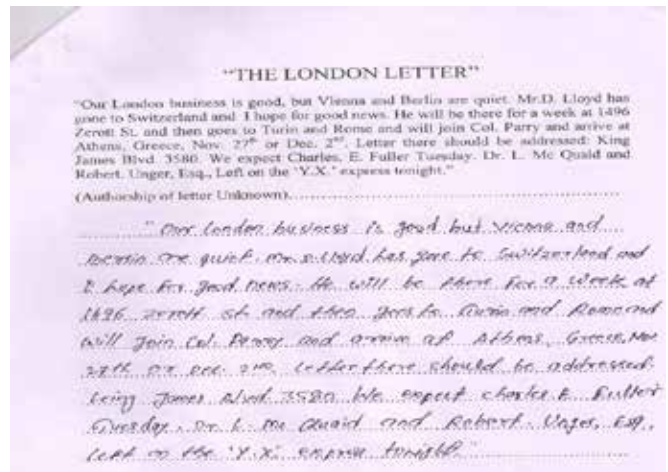 "THE LONDON LETTER"
"Our London business is good, but Vienna and Berlin are quiet. Mr.D. Lloyd has
gone to Switzerland and I hope for good news. He will be there for a week at 1496
Zerott St. and then goes to Turin and Rome and will join Col. Parry and arrive at
Athens, Greece, Nov. 27th or Dec. 2nd. Letter there should be addressed: King
James Blvd. 3580. We expect Charles, E. Fuller Tuesday. Dr. L. Mc Quaid and
Robert. Unger, Esq., Left on the 'Y.X.' express tonight."
(Authorship of letter Unknown)
"Our London business is good but Vienna and
Berlin are quiet. Mr. D. Lloyd has gone to Switzerland and
I hope for good news. He will be there for a week at
1496 zerott st and then goes to Turin and Rome and
will join Col. Parry and arrive at Athens, Greece, Nov
27th or Dec. 2nd. Letter there should be addressed.
King James Blvd 3580. We expect Charles E. Fuller
Tuesday. Dr. L. Mc Quaid and Robert. Unger, Esq,
Left on the 'Y.X.' express tonight."